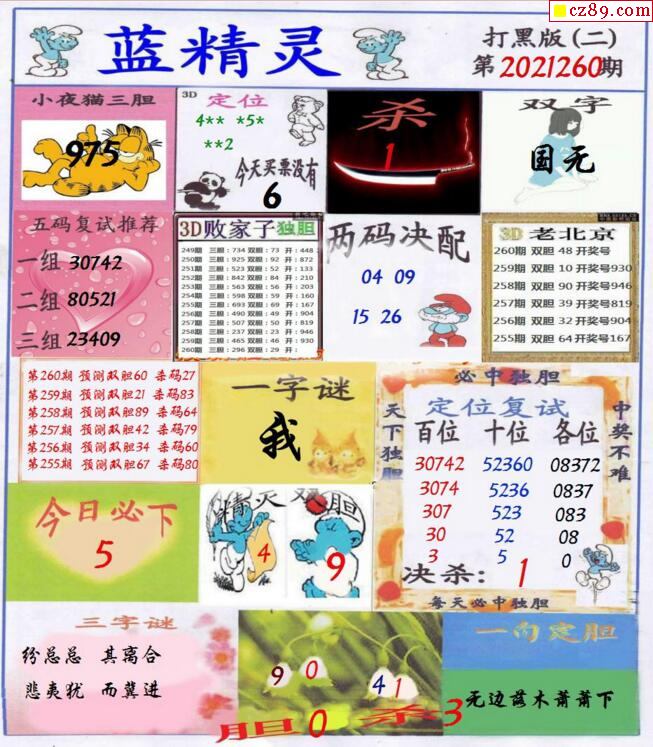 cz89.com
蓝精灵
打黑版(二)
第2021260期
小夜猫三胆
975
3D 定位
4** *5*
**2
今天买票没有
6
杀
1
双字
国无
五码复试推荐
一组 30742
二组 80521
三组 23409
3D败家子独胆
249期 三胆:734 双胆:73 开:448
250期 三胆:925 双胆:92 开:872
251期 三胆:523 双胆:52 开:133
252期 三胆:842 双胆:84 开:210
253期 三胆:563 双胆:56 开:203
254期 三胆:598 双胆:59 开:160
255期 三胆:693 双胆:69 开:167
256期 三胆:490 双胆:49 开:904
257期 三胆:507 双胆:50 开:819
258期 三胆:237 双胆:23 开:946
259期 三胆:465 双胆:46 开:930
260期 三胆:296 双胆:29 开:
两码决配
04 09
15 26
3D 老北京
260期 双胆 48 开奖号
259期 双胆 10 开奖号930
258期 双胆 90 开奖号946
257期 双胆 39 开奖号819
256期 双胆 32 开奖号904
255期 双胆 64 开奖号167
第260期 预测双胆60 杀码27
第259期 预测双胆21 杀码83
第258期 预测双胆89 杀码64
第257期 预测双胆42 杀码79
第256期 预测双胆34 杀码60
第255期 预测双胆67 杀码80
一字谜
我
必中独胆
天下独胆
中奖不难
定位复试
百位 十位 各位
30742 52360 08372
3074 5236 0837
307 523 083
30 52 08
3 5 0
决杀: 1
每天必中独胆
今日必下
5
精灵双胆
4 9
三字谜
纷总总 其离合
悲夷犹 而冀进
9 0
4 1
胆0 杀3
一句定胆
无边落木萧萧下